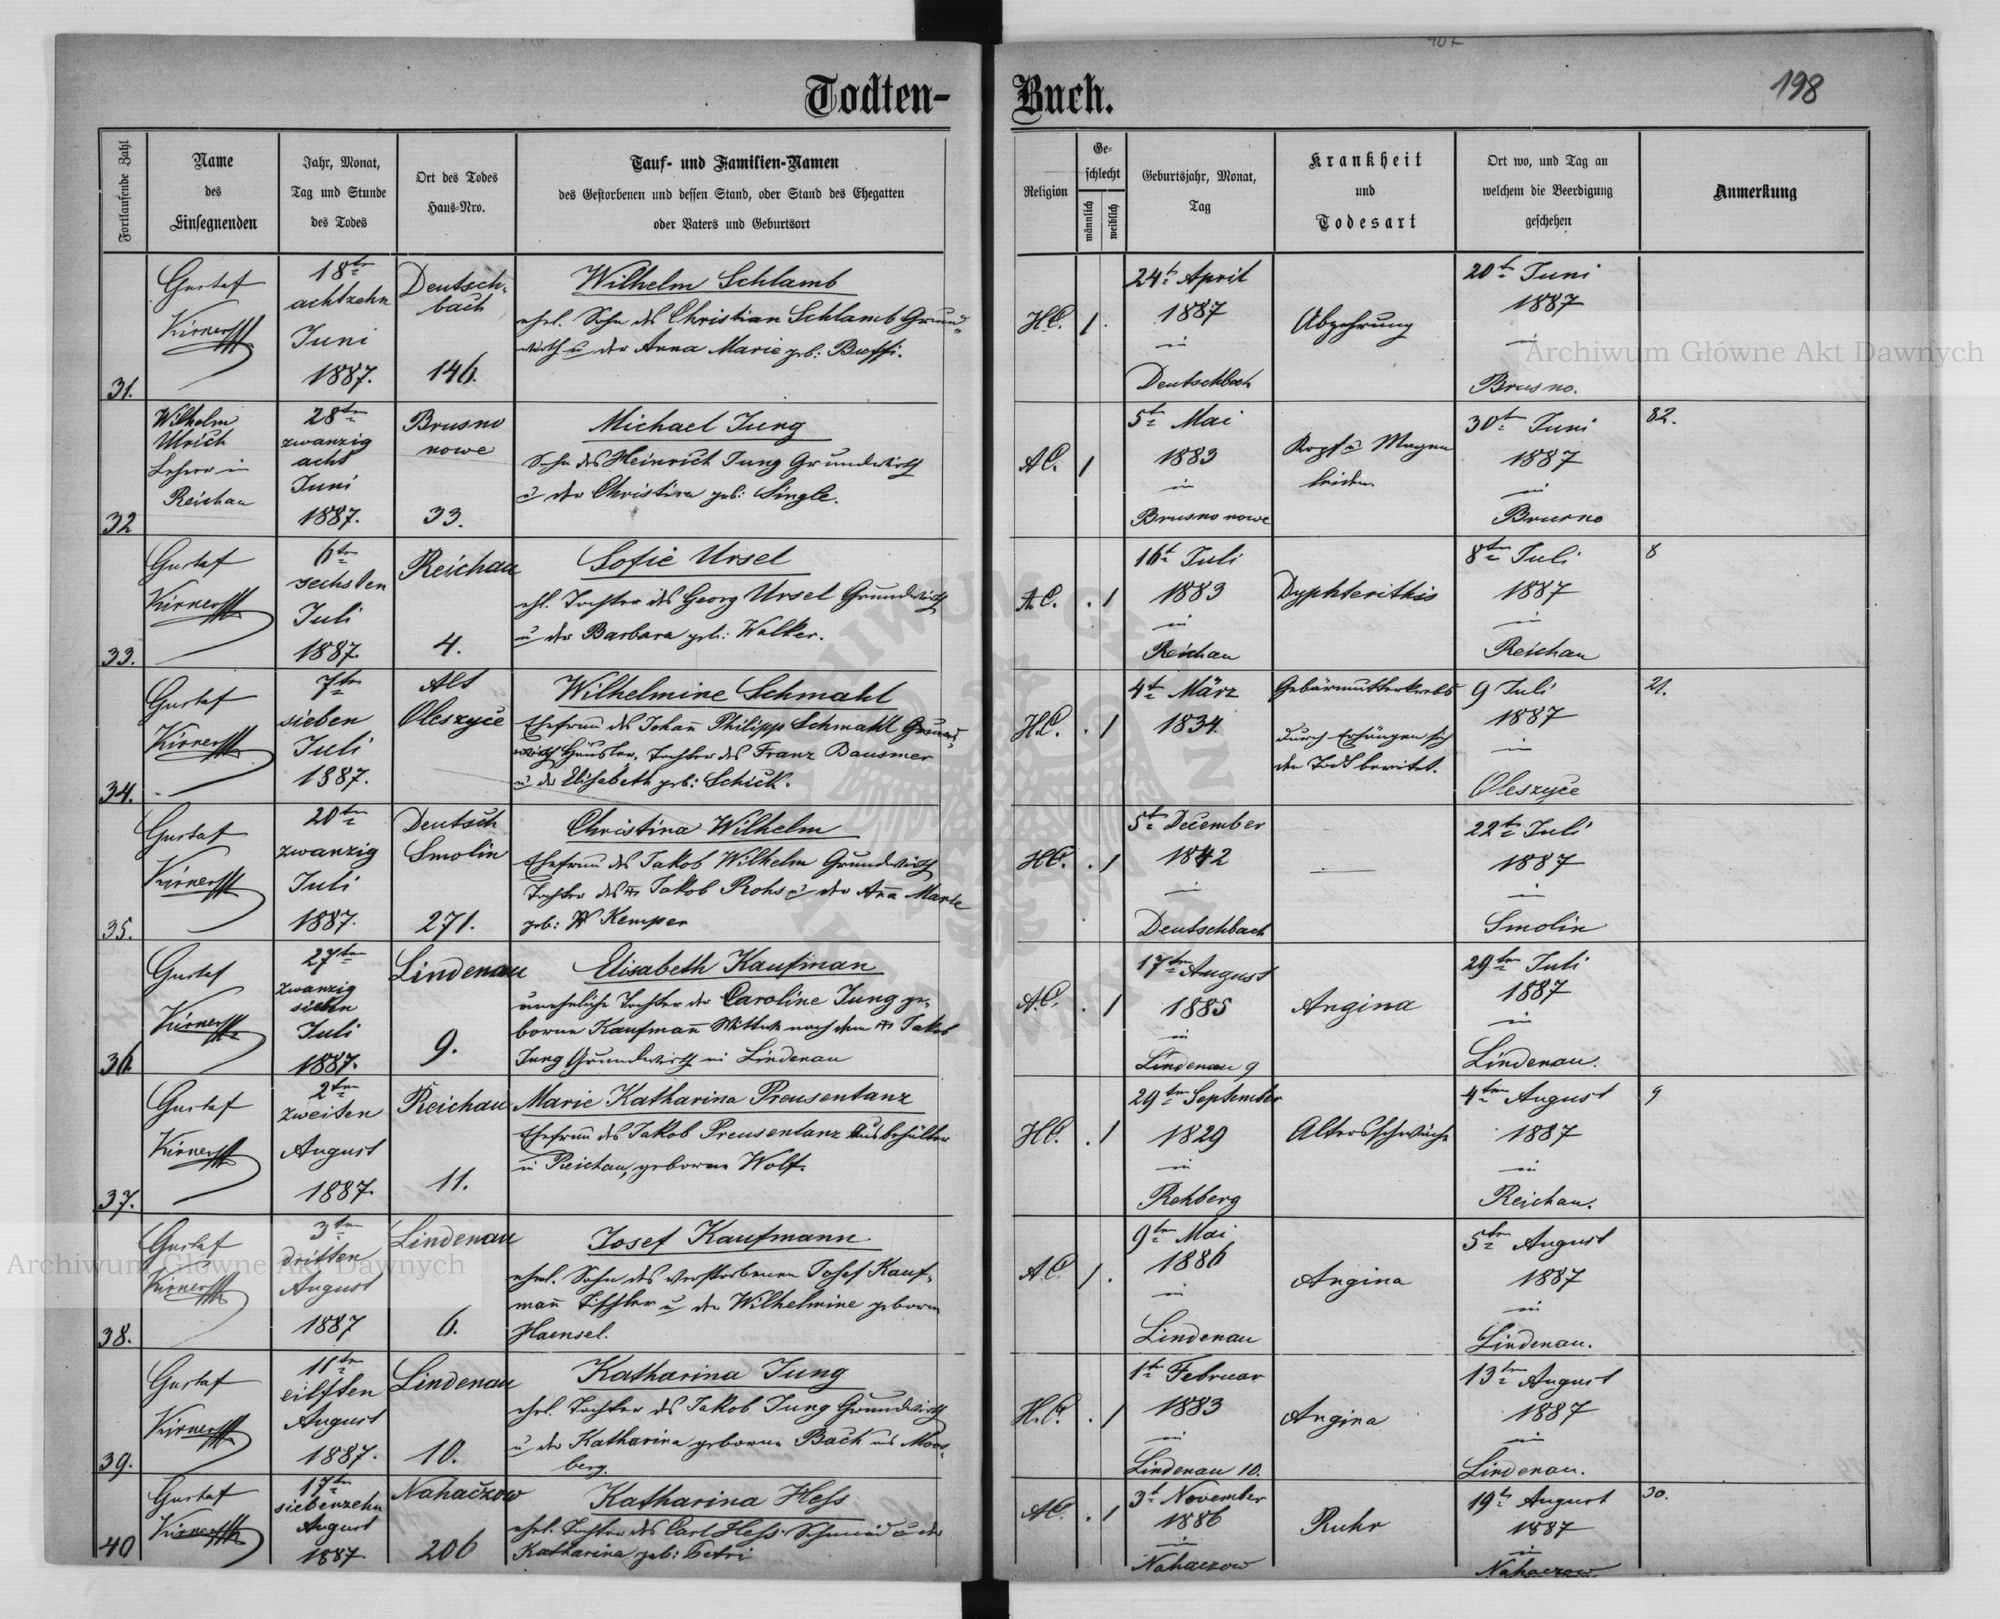 Todten-
Buch.
198
Fortlaufende Zahl
Name
des
Einsegnenden
Jahr, Monat,
Tag und Stunde
des Todes
Ort des Todes
Haus-Nro.
Tauf- und Familien-Namen
des Gestorbenen und dessen Stand, oder Stand des Ehegatten
oder Vaters und Geburtsort
Religion
Ge-
schlecht
männlich
weiblich
Geburtsjahr, Monat,
Tag
Krankheit
und
Todesart
Ort wo, und Tag an
welchem die Beerdigung
geschehen
Anmerkung
31.
Gustaf
18te
achtzehn
Juni
1887.
Deutsch-
bach
146.
Wilhelm Schlamb
ehel. Sohn des Christian Schlamb Grund-
wirth u der Anna Marie geb:
H.C. 1 .
24t April
1887
in
Deutschbach
Abzehrung
20t Juni
1887
in
Brusno.
32
Wilhelm
Ulrich
Lehrer in
Reichau
28ten
zwanzig
acht
Juni
1887.
Brusno
nowe
33.
Michael Jung
Sohn des Heinrich Jung Grundwirth
u der Christina geb: Single.
A.C. 1
5t Mai
1883
in
Brusno nowe
Kopf u Magen
leiden.
30t Juni
1887
in
Brusno
82.
33.
Gustaf
6ten
sechsten
Juli
1887.
Reichau
4.
Sofie Ursel
ehl. Tochter des Georg Ursel Grundwirth
u der Barbara geb: Walker.
A.C. . 1
16t Juli
1883
in
Reichau
Dyphterithis
8ten Juli
1887
in
Reichau
8
34.
Gustaf
7ten
sieben
Juli
1887.
Alt
Oleszyce
Wilhelmine Schmahl
Ehefrau des Johan̄ Philipp Schmahl Grund-
wirth Häusler, Tochter des Franz Bausmer
u der Elisabeth geb: Schick.
H.C. . 1
4t März
1834
Gebärmutterkrebs
durch Erhängen sich
den Tod bereitet.
9 Juli
1887
in
Oleszyce
21.
35.
Gustaf
20te
zwanzig
Juli
1887.
Deutsch
Smolin
271.
Christina Wilhelm
Ehefrau des Jakob Wilhelm Grundwirth
Tochter des Jakob Rohs u der An̄a Marie
geb: Kemper
H.C. . 1
5t December
1842
in
Deutschbach
22t Juli
1887
in
Smolin
36
Gustaf
27ten
zwanzig
sieben
Juli
1887.
Lindenau
9.
Elisabeth Kaufman
uneheliche Tochter der Caroline Jung ge-
borne Kaufman̄ Wittwe nach dem Jakob
Jung Grundwirth in Lindenau
A.C. . 1
17ten August
1885
in
Lindenau 9
Angina
29ten Juli
1887
in
Lindenau.
37.
Gustaf
2ten
zweiten
August
1887.
Reichau
11.
Marie Katharina Preusentanz
Ehefrau des Jakob Preusentanz Ausbehälter
in Reichau, geborene Wolf.
H.C. . 1
29ten September
1829
in
Rehberg
Altersschwäche
4ten August
1887
in
Reichau.
9
38.
Gustaf
3ten
dritten
August
1887
Lindenau
6.
Josef Kaufmann
ehel. Sohn des verstorbenen Josef Kauf-
man̄ Tischler u der Wilhelmine geborne
Haensel.
A.C. 1 .
9ten Mai
1886
in
Lindenau
Angina
5ten August
1887
in
Lindenau.
39.
Gustaf
11ten
eilften
August
1887.
Lindenau
10.
Katharina Jung
ehel. Tochter des Jakob Jung Grundwirth
u der Katharina geborne Bach aus Moos-
berg.
H.C. . 1
1te Februar
1883
in
Lindenau 10.
Angina
13te August
1887
in
Lindenau.
40
Gustaf
17ten
siebenzehn
August
1887.
Nahaczow
206
Katharina Hess
ehel. Tochter des Carl Hess Schmied u der
Katharina geb: Petri
A.C. . 1
3t November
1886
in
Nahaczow
Ruhr
19t August
1887
in
Nahaczow
30.
Archiwum Główne Akt Dawnych
Archiwum Główne Akt Dawnych